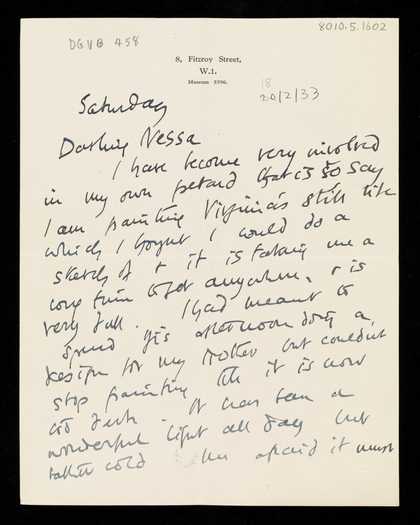 8010.5.1602
DGVB 458
8, Fitzroy Street,
W.1.
Museum 5596.
18
20/2/33
Saturday
Darling Nessa
I have become very involved
in my own petard that is to say
I am painting Virginia's still life
which I thought I would do a
sketch of & it is taking me a
long time to get anywhere, & is
very dull. I had meant to
spend this afternoon doing a
design for my Mother but couldn't
stop painting till it is now
dusk. It has been a
wonderful light all day but
rather cold afraid it must